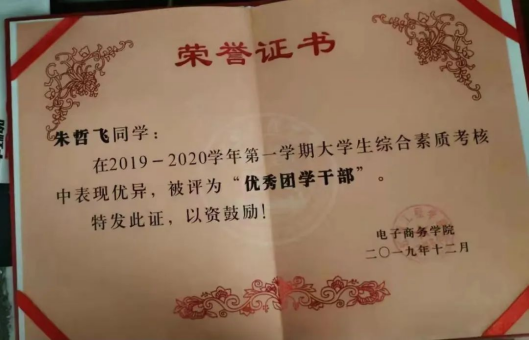 荣誉证书
朱哲飞同学：
在2019－2020学年第一学期大学生综合素质考核
中表现优异，被评为“优秀团学干部”。
特发此证，以资鼓励！
电子商务学院
二〇一九年十二月